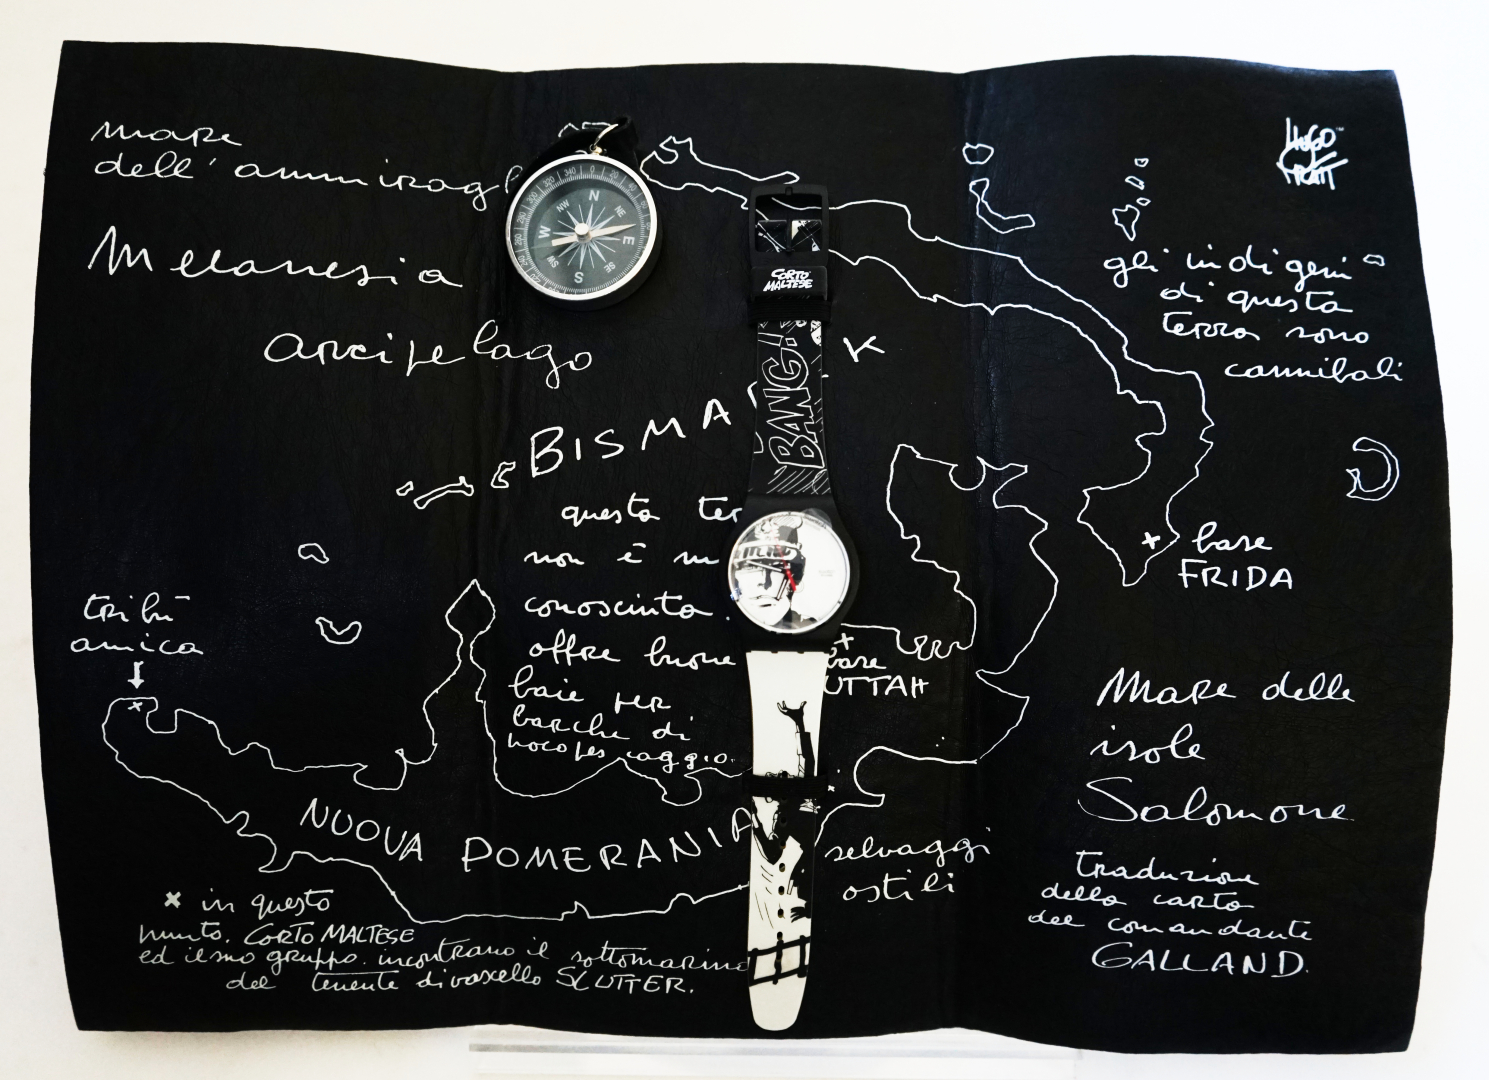 mare
dell'ammirag
Melanesia
arcipelago
BISMA K
questa ter
non è m
conosciuta
offre buone
baie per
barche di
poco pescaggio.
HUGO
PRATT
gli indigeni
di questa
terra sono
cannibali
base
FRIDA
tribù
amica
base
UTTAH
Mare delle
isole
Salomone
NUOVA POMERANIA
selvaggi
ostili
traduzione
della carta
del comandante
GALLAND.
x in questo
punto. CORTO MALTESE
ed il suo gruppo. incontrano il sottomarino
del tenente di vascello SLUTTER.
CORTO
MALTESE
BANG!
N
NE
E
SE
S
SW
W
NW